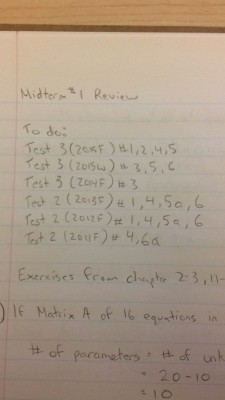 Midterm #1 Review
To do:
Test 3 (2015F) #1,2,4,5
Test 3 (2015W) # 3,5,6
Test 3 (2014F) #3
Test 2 (2013F) # 1,4,5a,6
Test 2 (2012F) # 1,4,5a,6
Test 2 (2011F) # 4,6a
Exercises from chapter 2-3, 11-
) If Matrix A of 16 equations in
# of parameters = # of unk
= 20-10
= 10